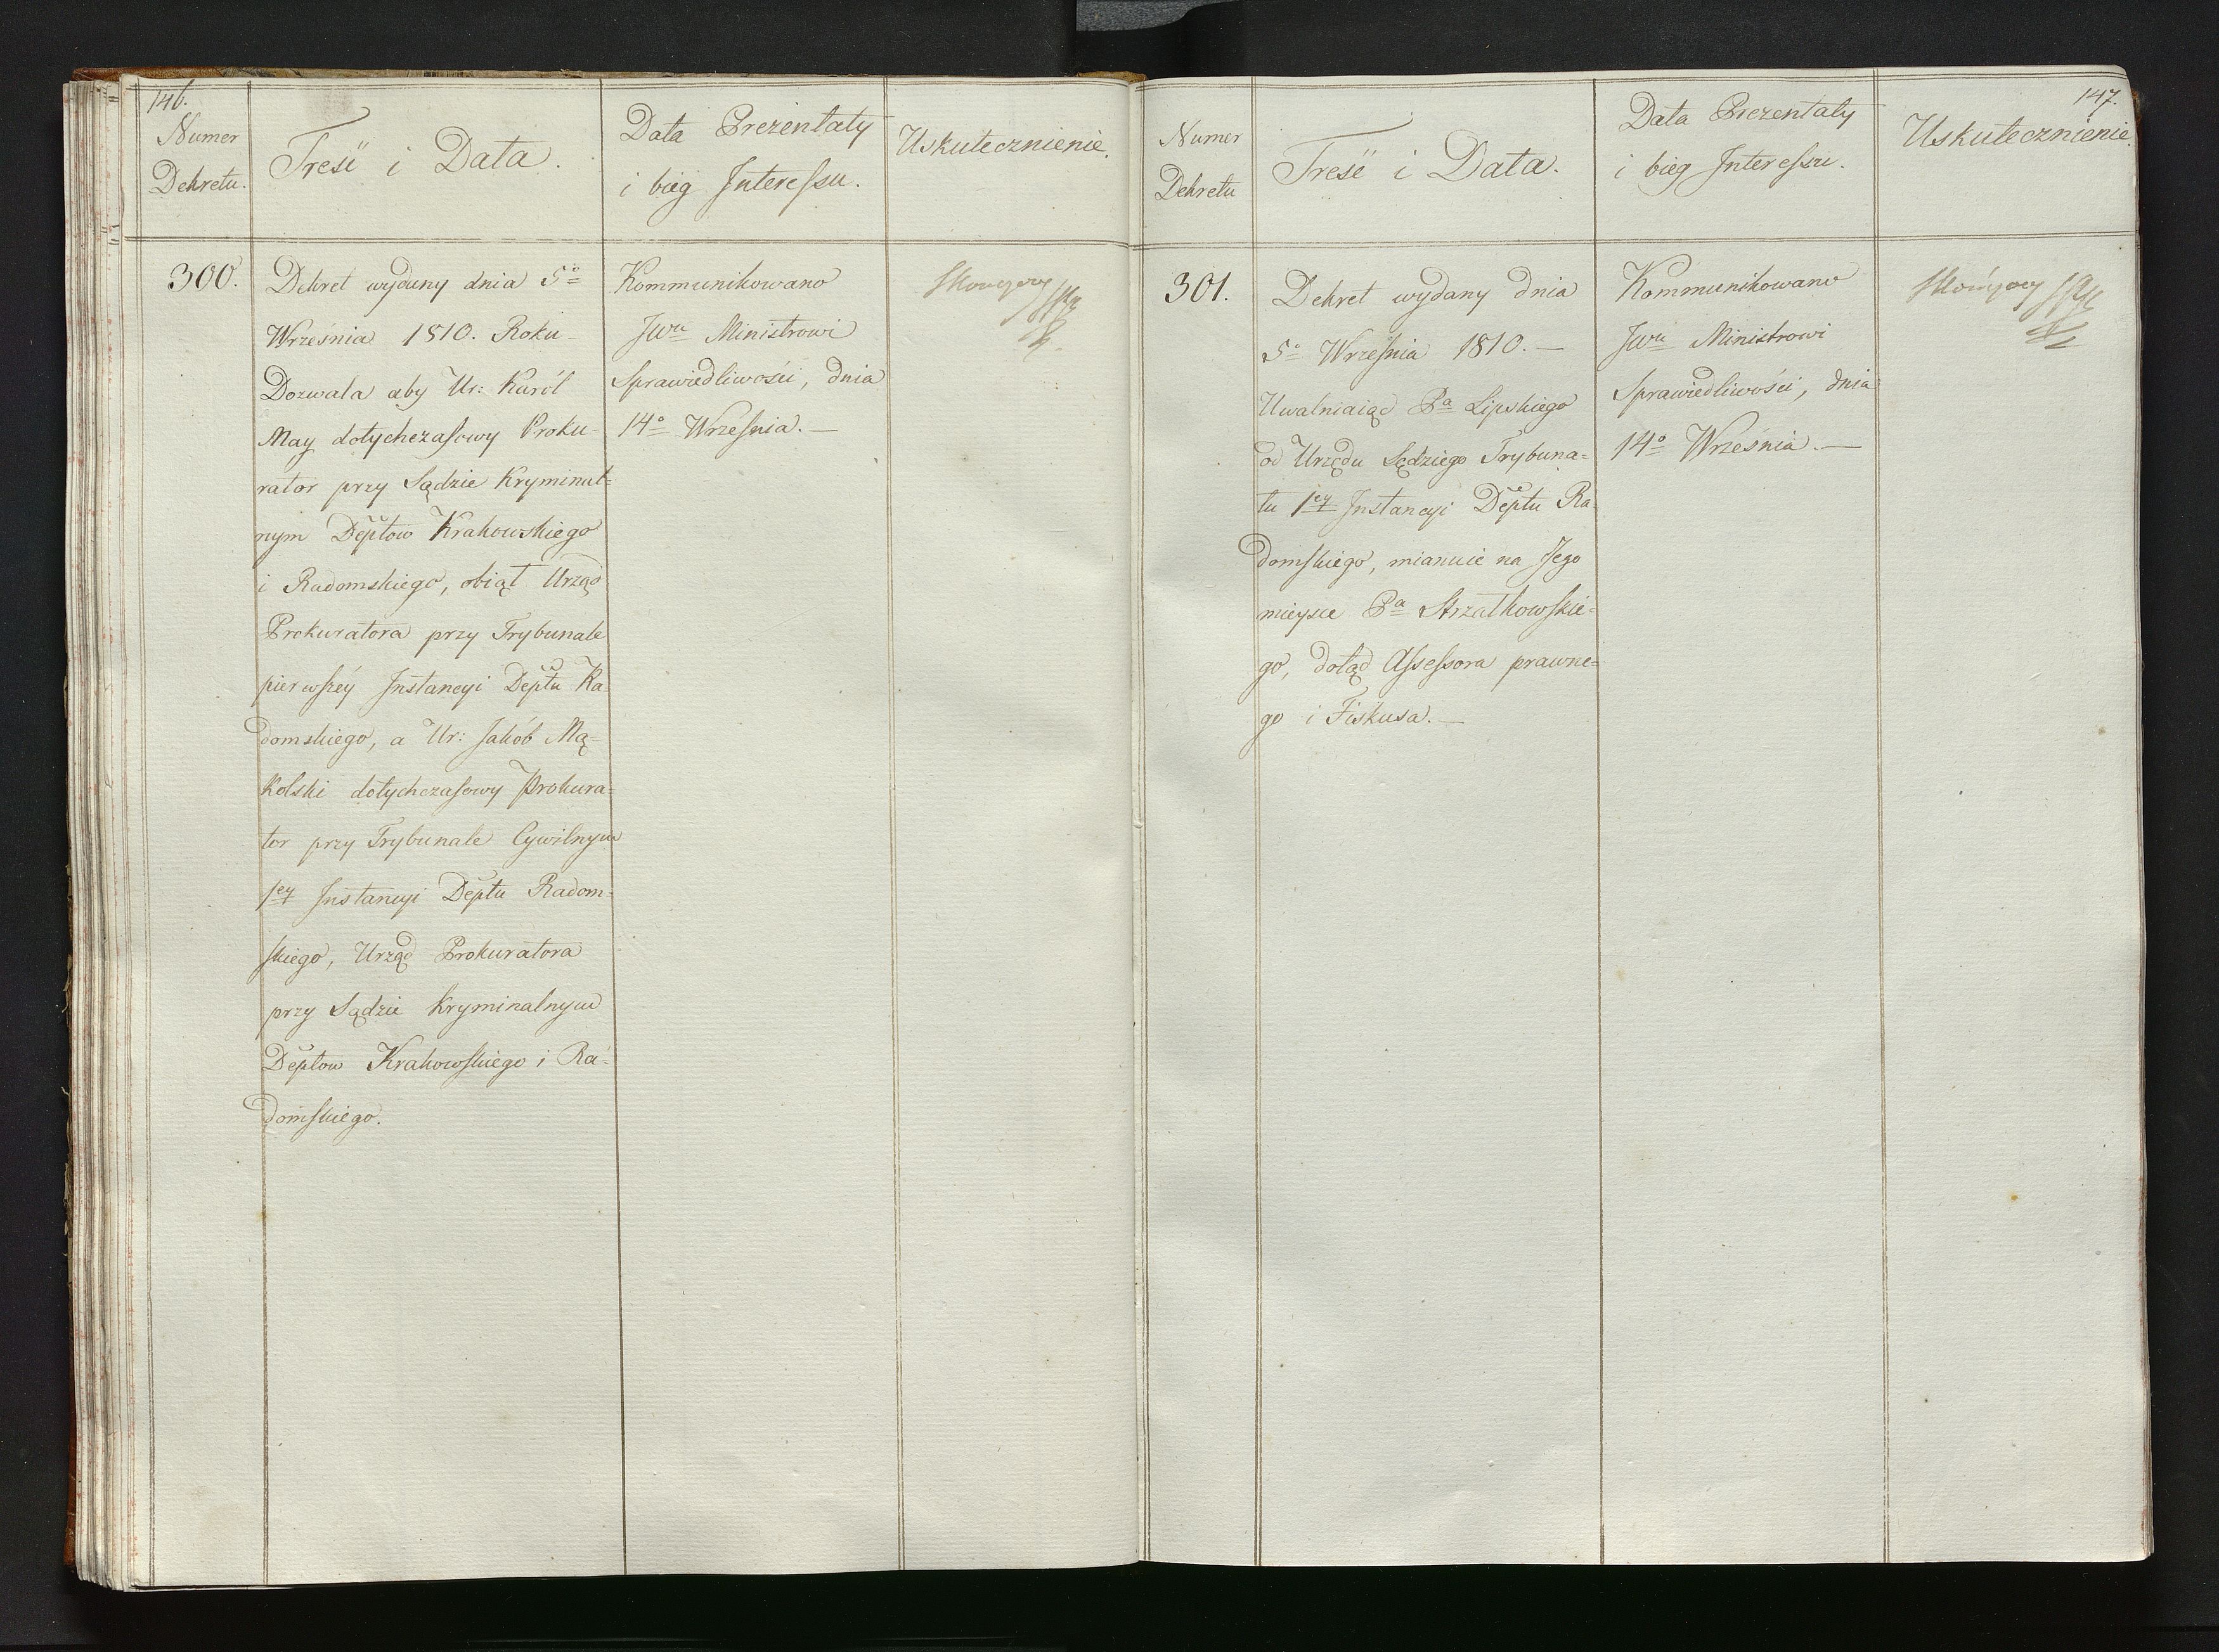 146.
Numer
Dekretu.
Treść i Data.
Data Prezentaty
i bieg Interessu.
Uskutecznienie.
300.
Dekret wydany dnia 5º
Września 1810. Roku
Dozwala aby Ur: Karól
May dotychczasowy Proku-
rator przy Sądzie Kryminal=
nym Deptow Krakowskiego
i Radomskiego, obiął Urząd
Prokuratora przy Trybunale
pierwszéy Instancyi Deptu Ra-
domskiego, a Ur: Jakób Mą-
kolski dotychczasowy Prokura=
tor przy Trybunale Cywilnym
1ey Instancyi Deptu Radom=
skiego, Urząd Prokuratora
przy Sądzie Kryminalnym
Deptow Krakowskiego i Ra-
domskiego.
Kommunikowano
Jwu Ministrowi
Sprawiedliwości, dnia
14º Września. —
Skończony
147.
Numer
Dekretu
Treść i Data.
Data Prezentaty
i bieg Interessu.
Uskutecznienie.
301.
Dekret wydany dnia
5º Września 1810. —
Uwalniaiąc Pa Lipskiego
od Urzędu Sędziego Trybuna=
tu 1ey Instancyi Deptu Ra-
domskiego, mianuie na Jego
mieysce Pa Strzałkowskie=
go, dotąd Assessora prawne=
go i Fiskusa. —
Kommunikowano
Jwu Ministrowi
Sprawiedliwości, dnia
14º Września. —
Skończony